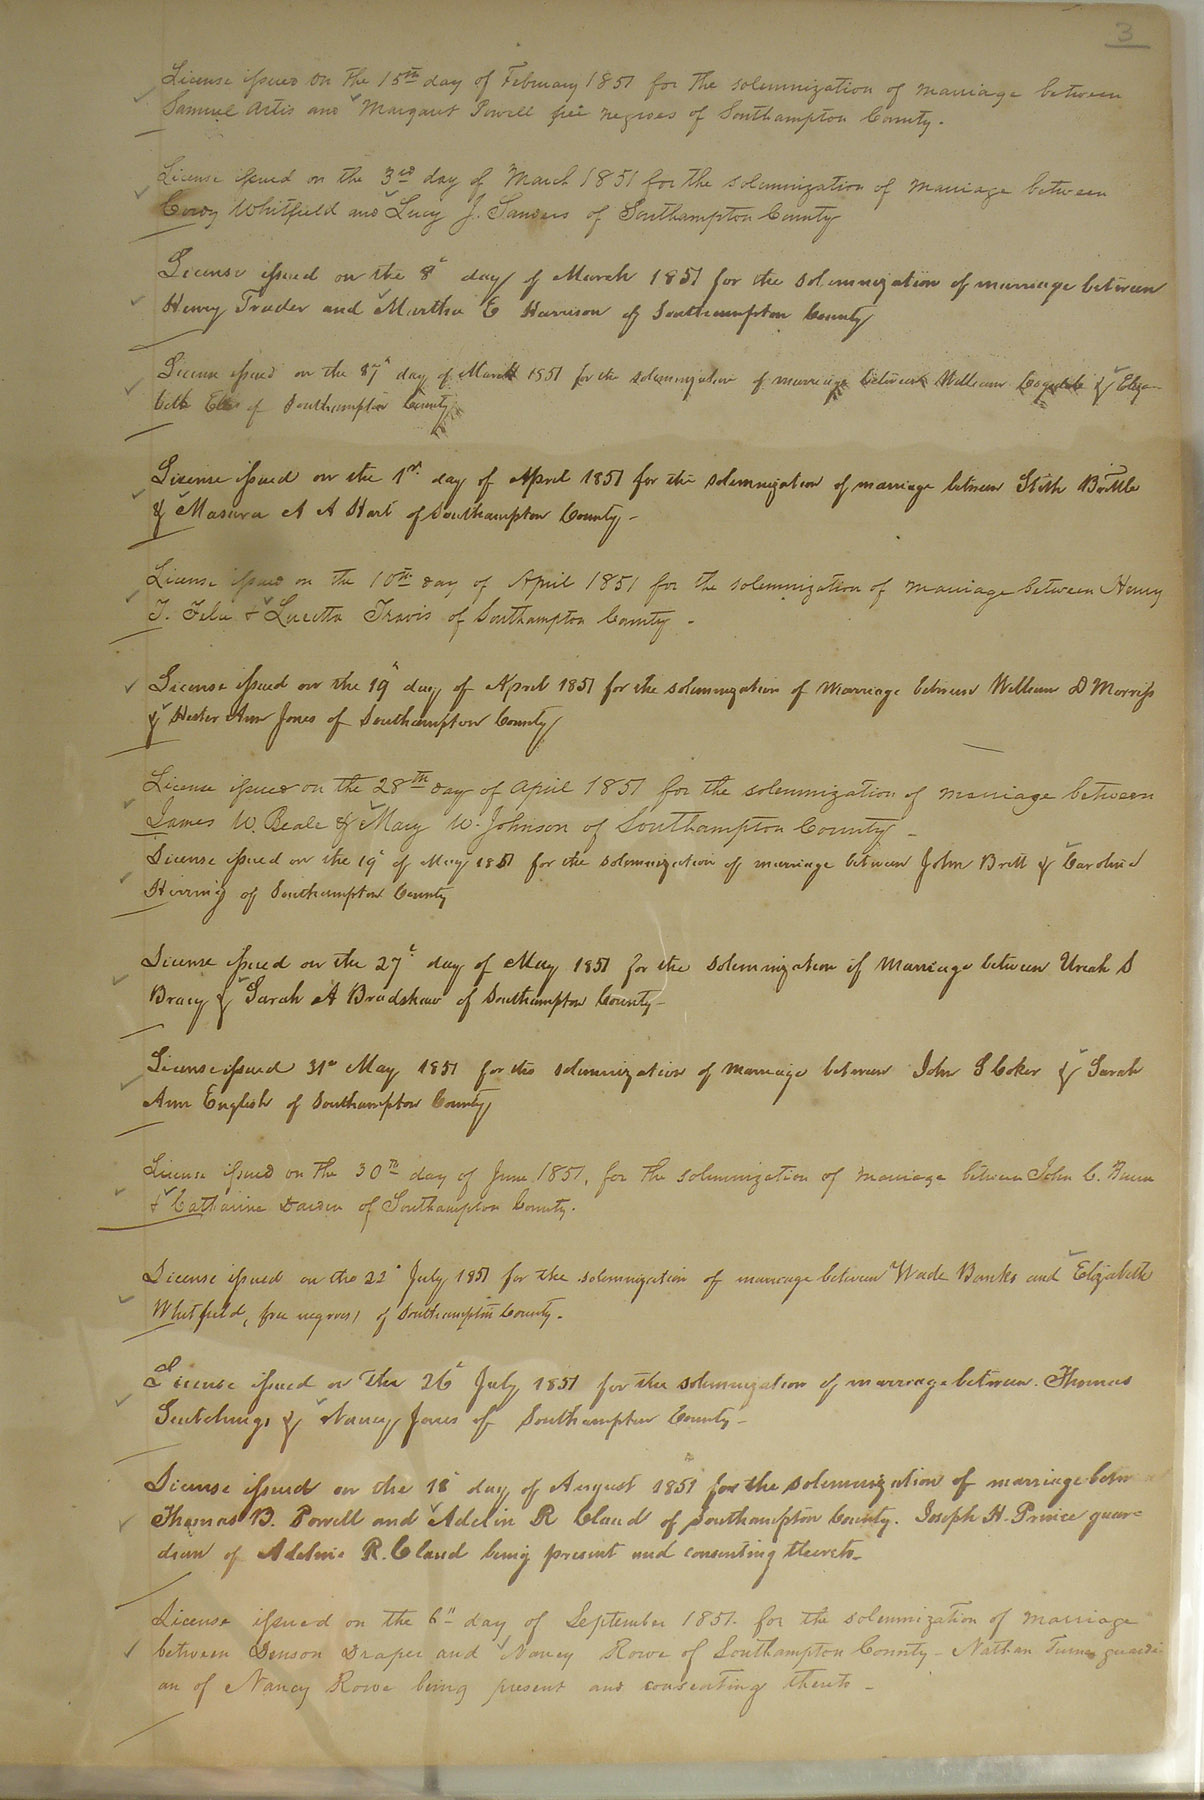 3
License issued on the 15th day of February 1851 for the solemnization of marriage between
Samuel Artis and Margaret Powell free negroes of Southampton County.
License issued on the 3rd day of March 1851 for the solemnization of marriage between
Whitfield and Lucy J. Sanders of Southampton County
License issued on the 8th day of March 1851 for the solemnization of marriage between
Henry Trader and Martha E Harrison of Southampton County
License issued on the day of March 1851 for the solemnization of marriage between William & Eliza-
beth of Southampton County
License issued on the 1st day of April 1851 for the solemnization of marriage between Stith Bottle
& A A Hart of Southampton County -
License issued on the 10th day of April 1851 for the solemnization of marriage between Henry
T. & Lucetta Travis of Southampton County -
License issued on the 19th day of April 1851 for the solemnization of marriage between William D Morriss
& Hester Ann Jones of Southampton County
License issued on the 28th day of April 1851 for the solemnization of marriage between
James W. Beale & Mary W. Johnson of Southampton County -
License issued on the 19th of May 1851 for the solemnization of marriage between John Britt & Caroline
Herring of Southampton County
License issued on the 27th day of May 1851 for the solemnization of Marriage between Uriah S
Bracy & Sarah A Bradshaw of Southampton County -
License issued 31st May 1851 for the solemnization of marriage between John S Coker & Sarah
Ann English of Southampton County
License issued on the 30th day of June 1851, for the solemnization of marriage between John C.
& Catharine Darden of Southampton County.
License issued on the 22d July 1851 for the solemnization of marriage between Wade Banks and Elizabeth
Whitfield, free negroes, of Southampton County -
License issued on the 26th July 1851 for the solemnization of marriage between Thomas
& Nancy Jones of Southampton County -
License issued on the 18th day of August 1851 for the solemnization of marriage betw
Thomas B. Powell and Adelin R Claud of Southampton County. Joseph H. Prince guar=
dian of Adeline R. Claud being present and consenting thereto -
License issued on the 6th day of September 1851 for the solemnization of marriage
between Denson Draper and Nancy Rowe of Southampton County - Nathan Turner guardi
an of Nancy Rowe being present and consenting thereto -